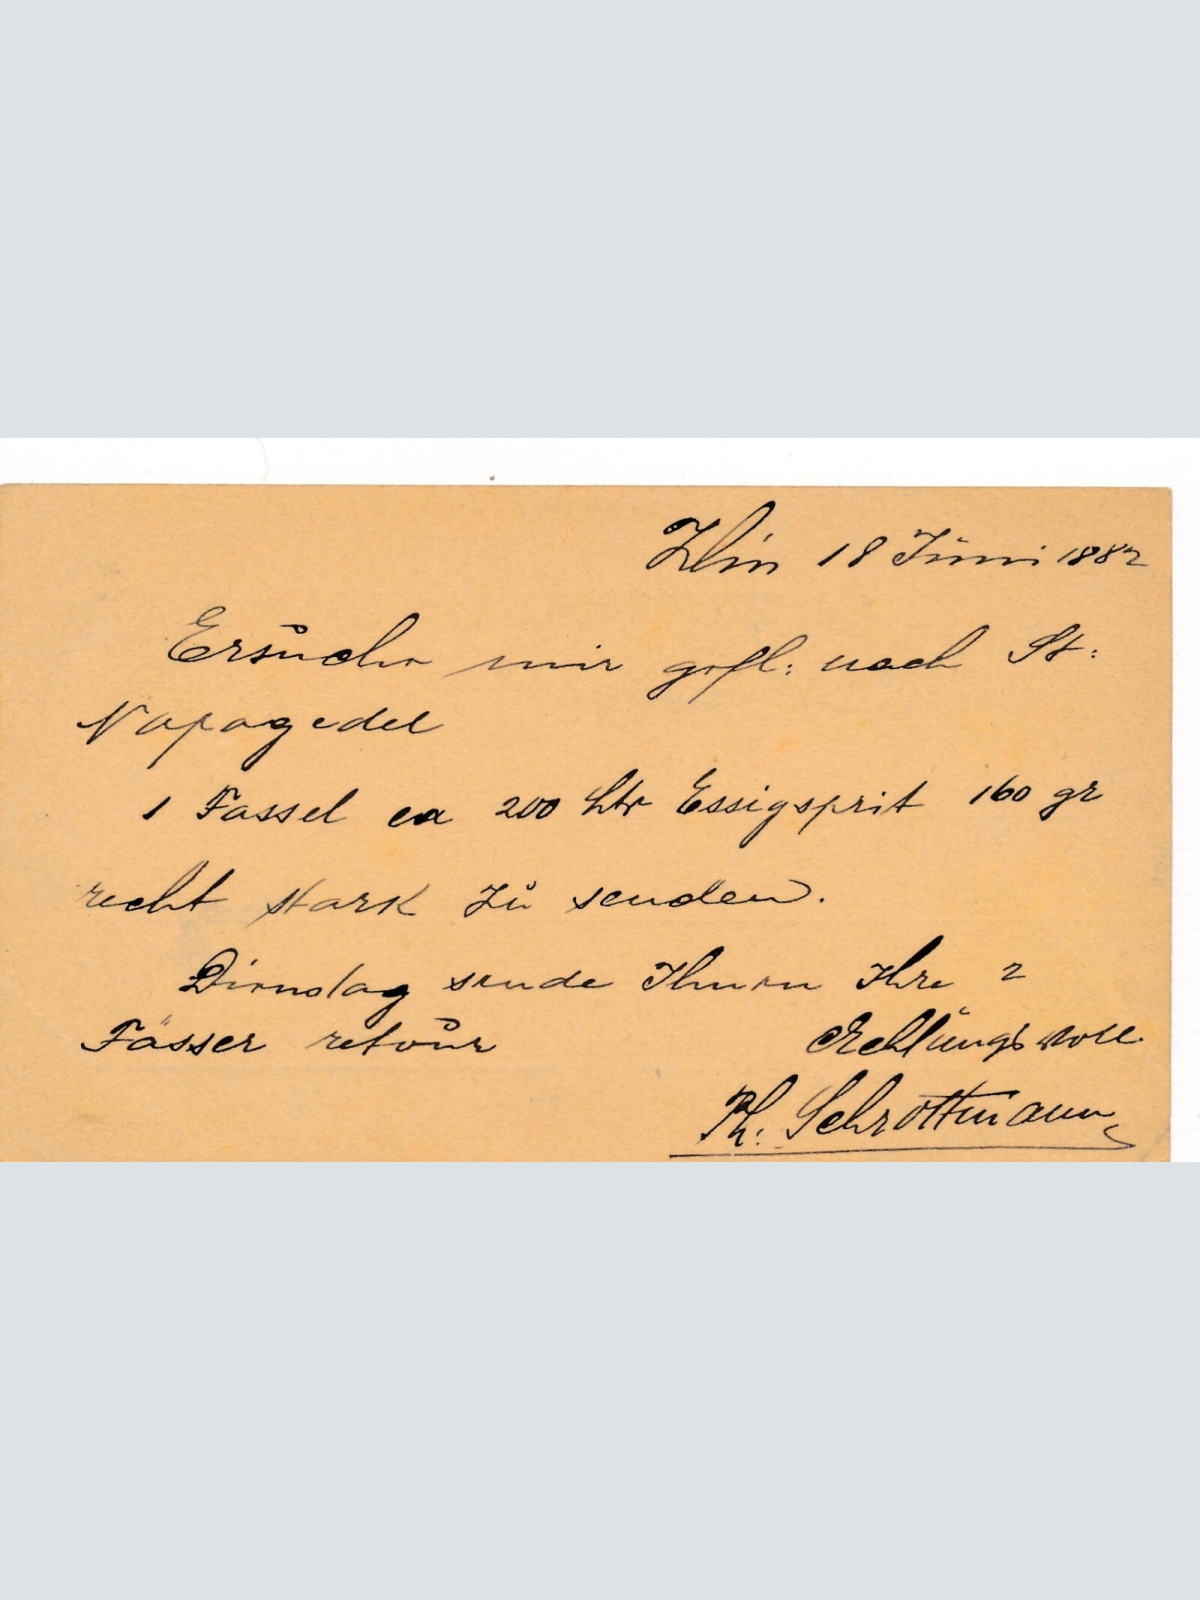 Zlin 18 Juni 1882
Ersuche mir gefl: nach St:
Napagedel
1 Fassel ca 200 Ltr Essigsprit 160 gr
recht stark zu senden.
Dienstag sende Ihnen Ihre 2
Fässer retour Achtungsvoll
Ph. Schrottmann